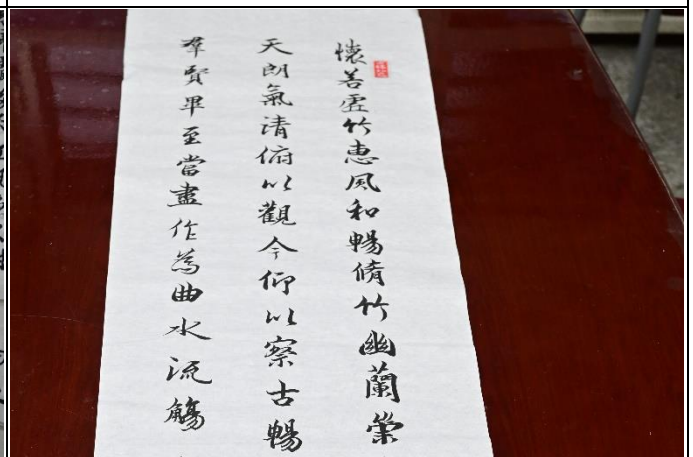 懷若虛竹惠風和暢脩竹幽蘭
天朗氣清俯以觀今仰以察古暢
羣賢畢至當盡作為曲水流觴